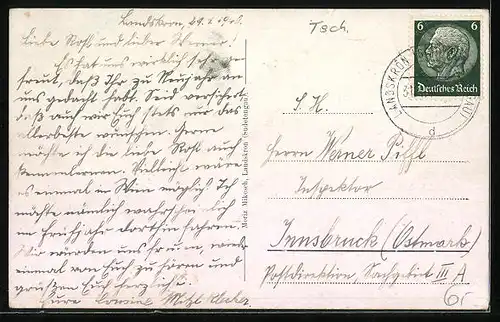 Landskron, 29.1.
Liebe Rosl und lieber Werner!
Es hat uns wirklich sehr ge-
freut, daß Ihr zu Neujahr an
uns gedacht habt. Seid versichert,
daß auch wir Euch stets nur das
allerbeste wünschen. Gerne
möchte ich die liebe Rosl auch
kennenlernen. Vielleicht wäre
es einmal in Wien möglich. Ich
möchte nämlich wahrscheinlich
im Frühjahr dorthin fahren.
Wir würden uns freuen, wieder
einmal von Euch zu hören und
grüßen Euch herzlichst
Eure
Moritz Mikosch, Landskron (Sudetengau)
Tsch.
6 6
Deutsches Reich
LANDSKRON
d
S. H.
Herrn Werner Piffl
Inspektor
Innsbruck (Ostmark)
Postdirektion, Sachgebiet III A